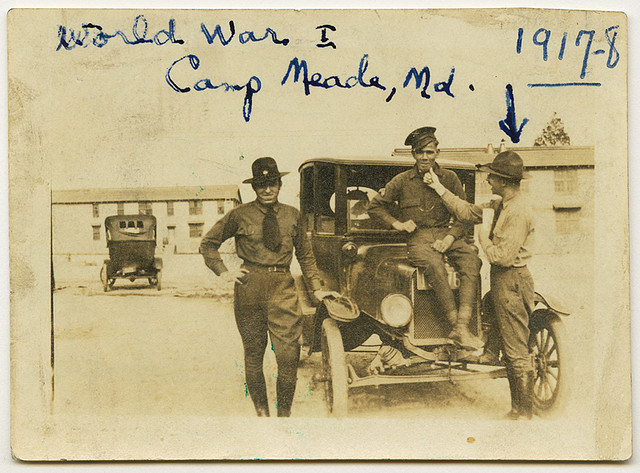 World War I 1917-8
Camp Meade, Md.